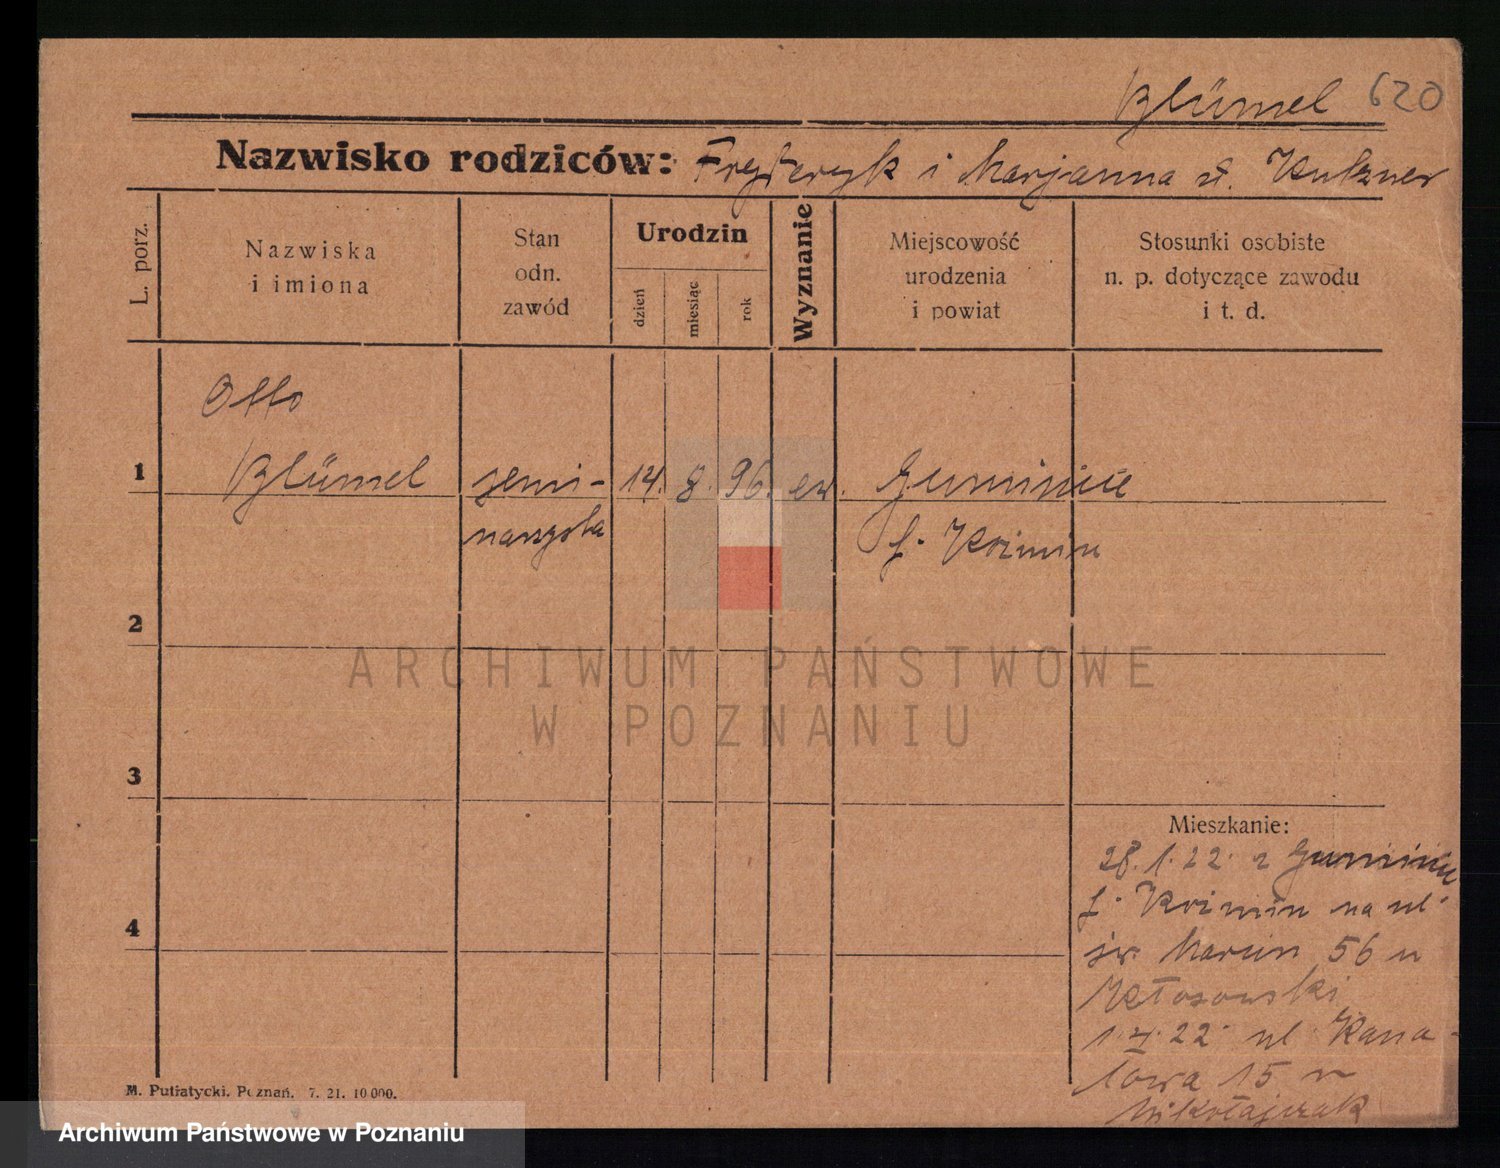 Blümel 620
Nazwisko rodziców: Fryderyk i Marjanna d. Kutzner
L. porz.
Nazwiska
i imiona
Stan
odn.
zawód
Urodzin
dzień
miesiąc
rok
Wyznanie
Miejscowość
urodzenia
i powiat
Stosunki osobiste
n. p. dotyczące zawodu
i t. d.
Otto
1 Blümel semi- 14. 8. 96. ew. Guminice
narzysta
p. Koźmin
2
3
4
Mieszkanie:
28.1.22. z Guminice
p. Koźmin na ul.
św. Marcin 56 u
Kłosowski
1.4.22. ul. Kana-
łowa 15 u
Mikołajczak
M. Putiatycki. Poznań. 7. 21. 10 000.
ARCHIWUM PAŃSTWOWE
W POZNANIU
Archiwum Państwowe w Poznaniu